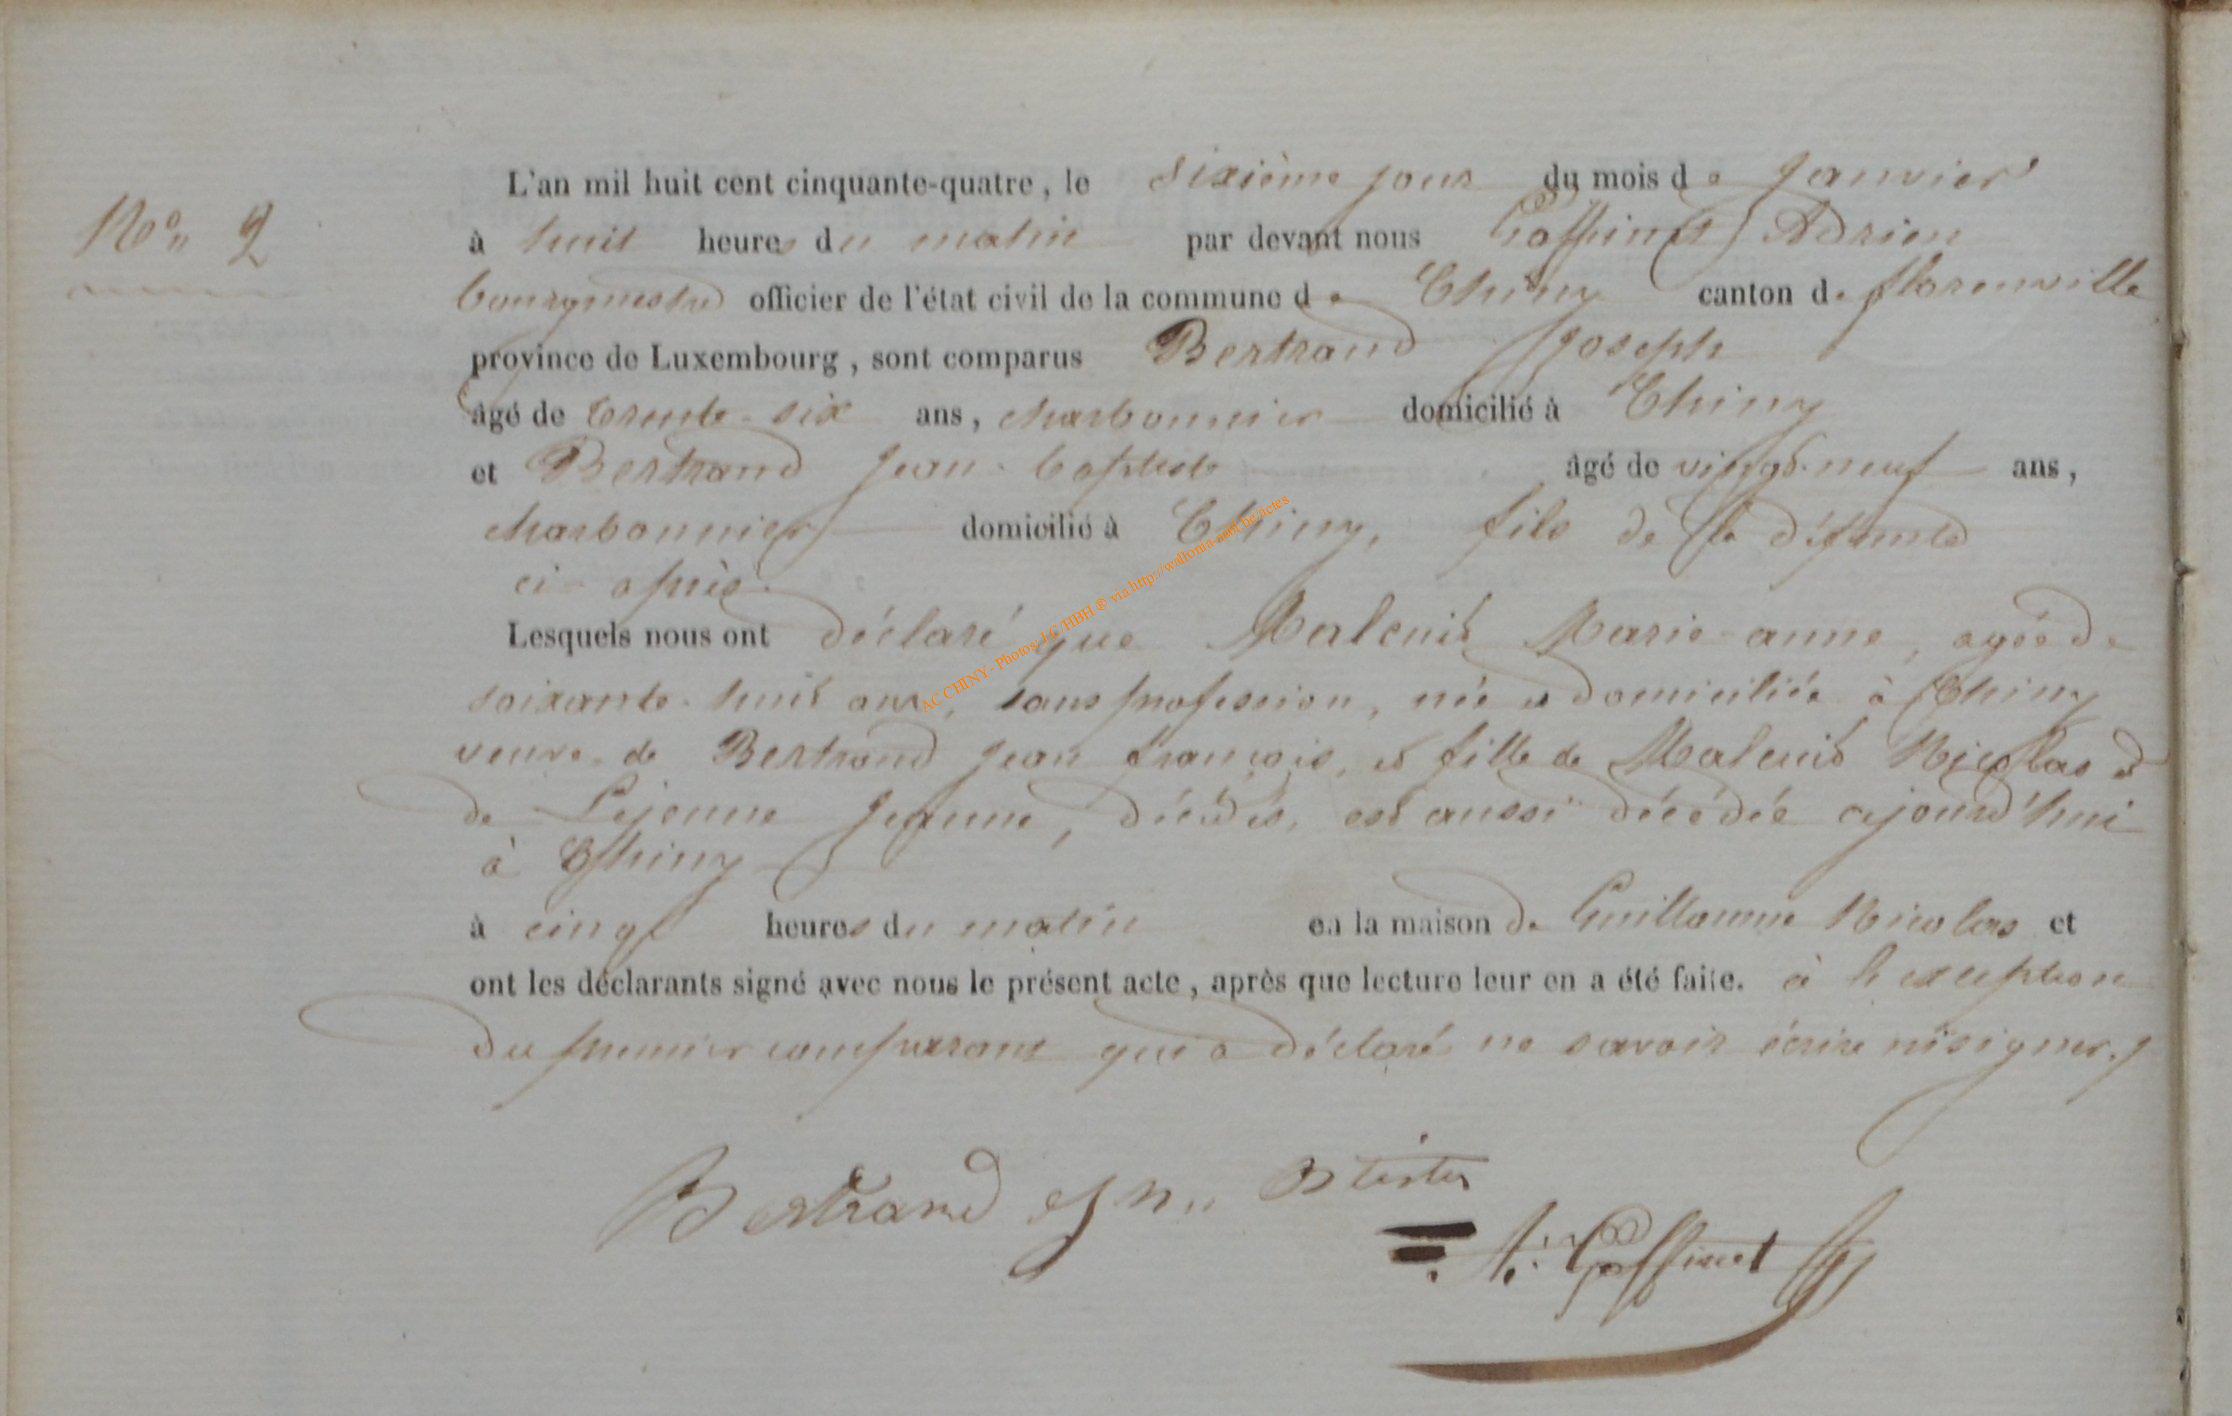 L'an mil huit cent cinquante-quatre, le sixième jour du mois de Janvier
No 2
à huit heures du matin par devant nous Goffinet Adrien
bourgmestre officier de l'état civil de la commune de Chiny canton de florenville
province de Luxembourg, sont comparus Bertrand Joseph
âgé de trente-six ans, charbonnier domicilié à Chiny
et Bertrand Jean-baptiste âgé de vingt-neuf ans,
charbonnier domicilié à Chiny, fils de la défunte
ci-après.
Lesquels nous ont déclaré que Marie-anne, agée de
soixante-huit ans, sans profession, née et domiciliée à Chiny
veuve de Bertrand Jean françois, et fille de Nicolas et
de Lejeune Jeanne, décédés, est aussi décédée ajourd'hui
à Chiny
à cinq heures du matin en la maison de Guillaume Nicolas et
ont les déclarants signé avec nous le présent acte, après que lecture leur en a été faite. à l'exception
du premier comparant qui a déclaré ne savoir écrire ni signer.
Bertrand
A. Goffinet
AC CHINY - Photos J.C HBH ® via http://wallonia-asbl.be/actes